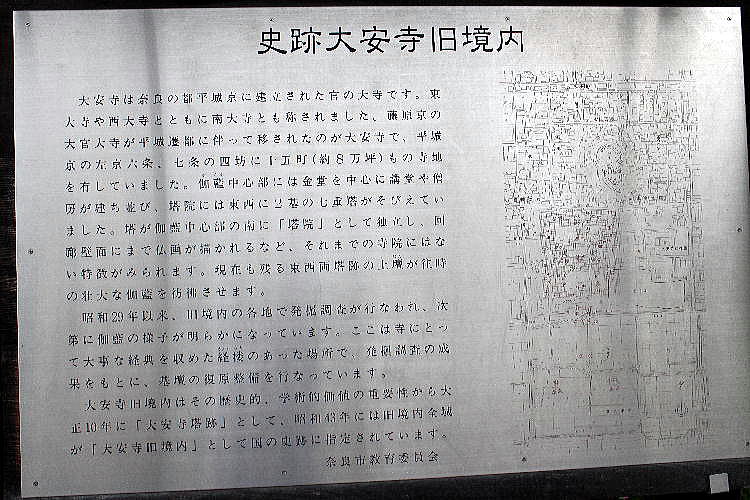 史跡大安寺旧境内
大安寺は奈良の都平城京に建立された官の大寺です。東
大寺や西大寺とともに南大寺とも称されました、藤原京の
大官大寺が平城遷都に伴って移されたのが大安寺で、平城
京の左京六条、七条の四坊に十五町(約8万坪)もの寺地
を有していました。伽藍中心部には金堂を中心に講堂や僧
房が建ち並び、塔院には東西に2基の七重塔がそびえてい
ました。塔が伽藍中心部の南に「塔院」として独立し、回
廊壁面にまで仏画が描かれるなど、それまでの寺院にはな
い特徴がみられます。現在も残る東西両塔跡の土壇が往時
の壮大な伽藍を彷彿させます。
昭和29年以来、旧境内の各地で発掘調査が行なわれ、次
第に伽藍の様子が明らかになっています。ここは寺にとっ
て大事な経典を収めた経楼のあった場所で、発掘調査の成
果をもとに、基壇の復原整備を行なっています。
大安寺旧境内はその歴史的、学術的価値の重要性から大
正10年に「大安寺塔跡」として、昭和43年には旧境内全域
が「大安寺旧境内」として国の史跡に指定されています。
奈良市教育委員会